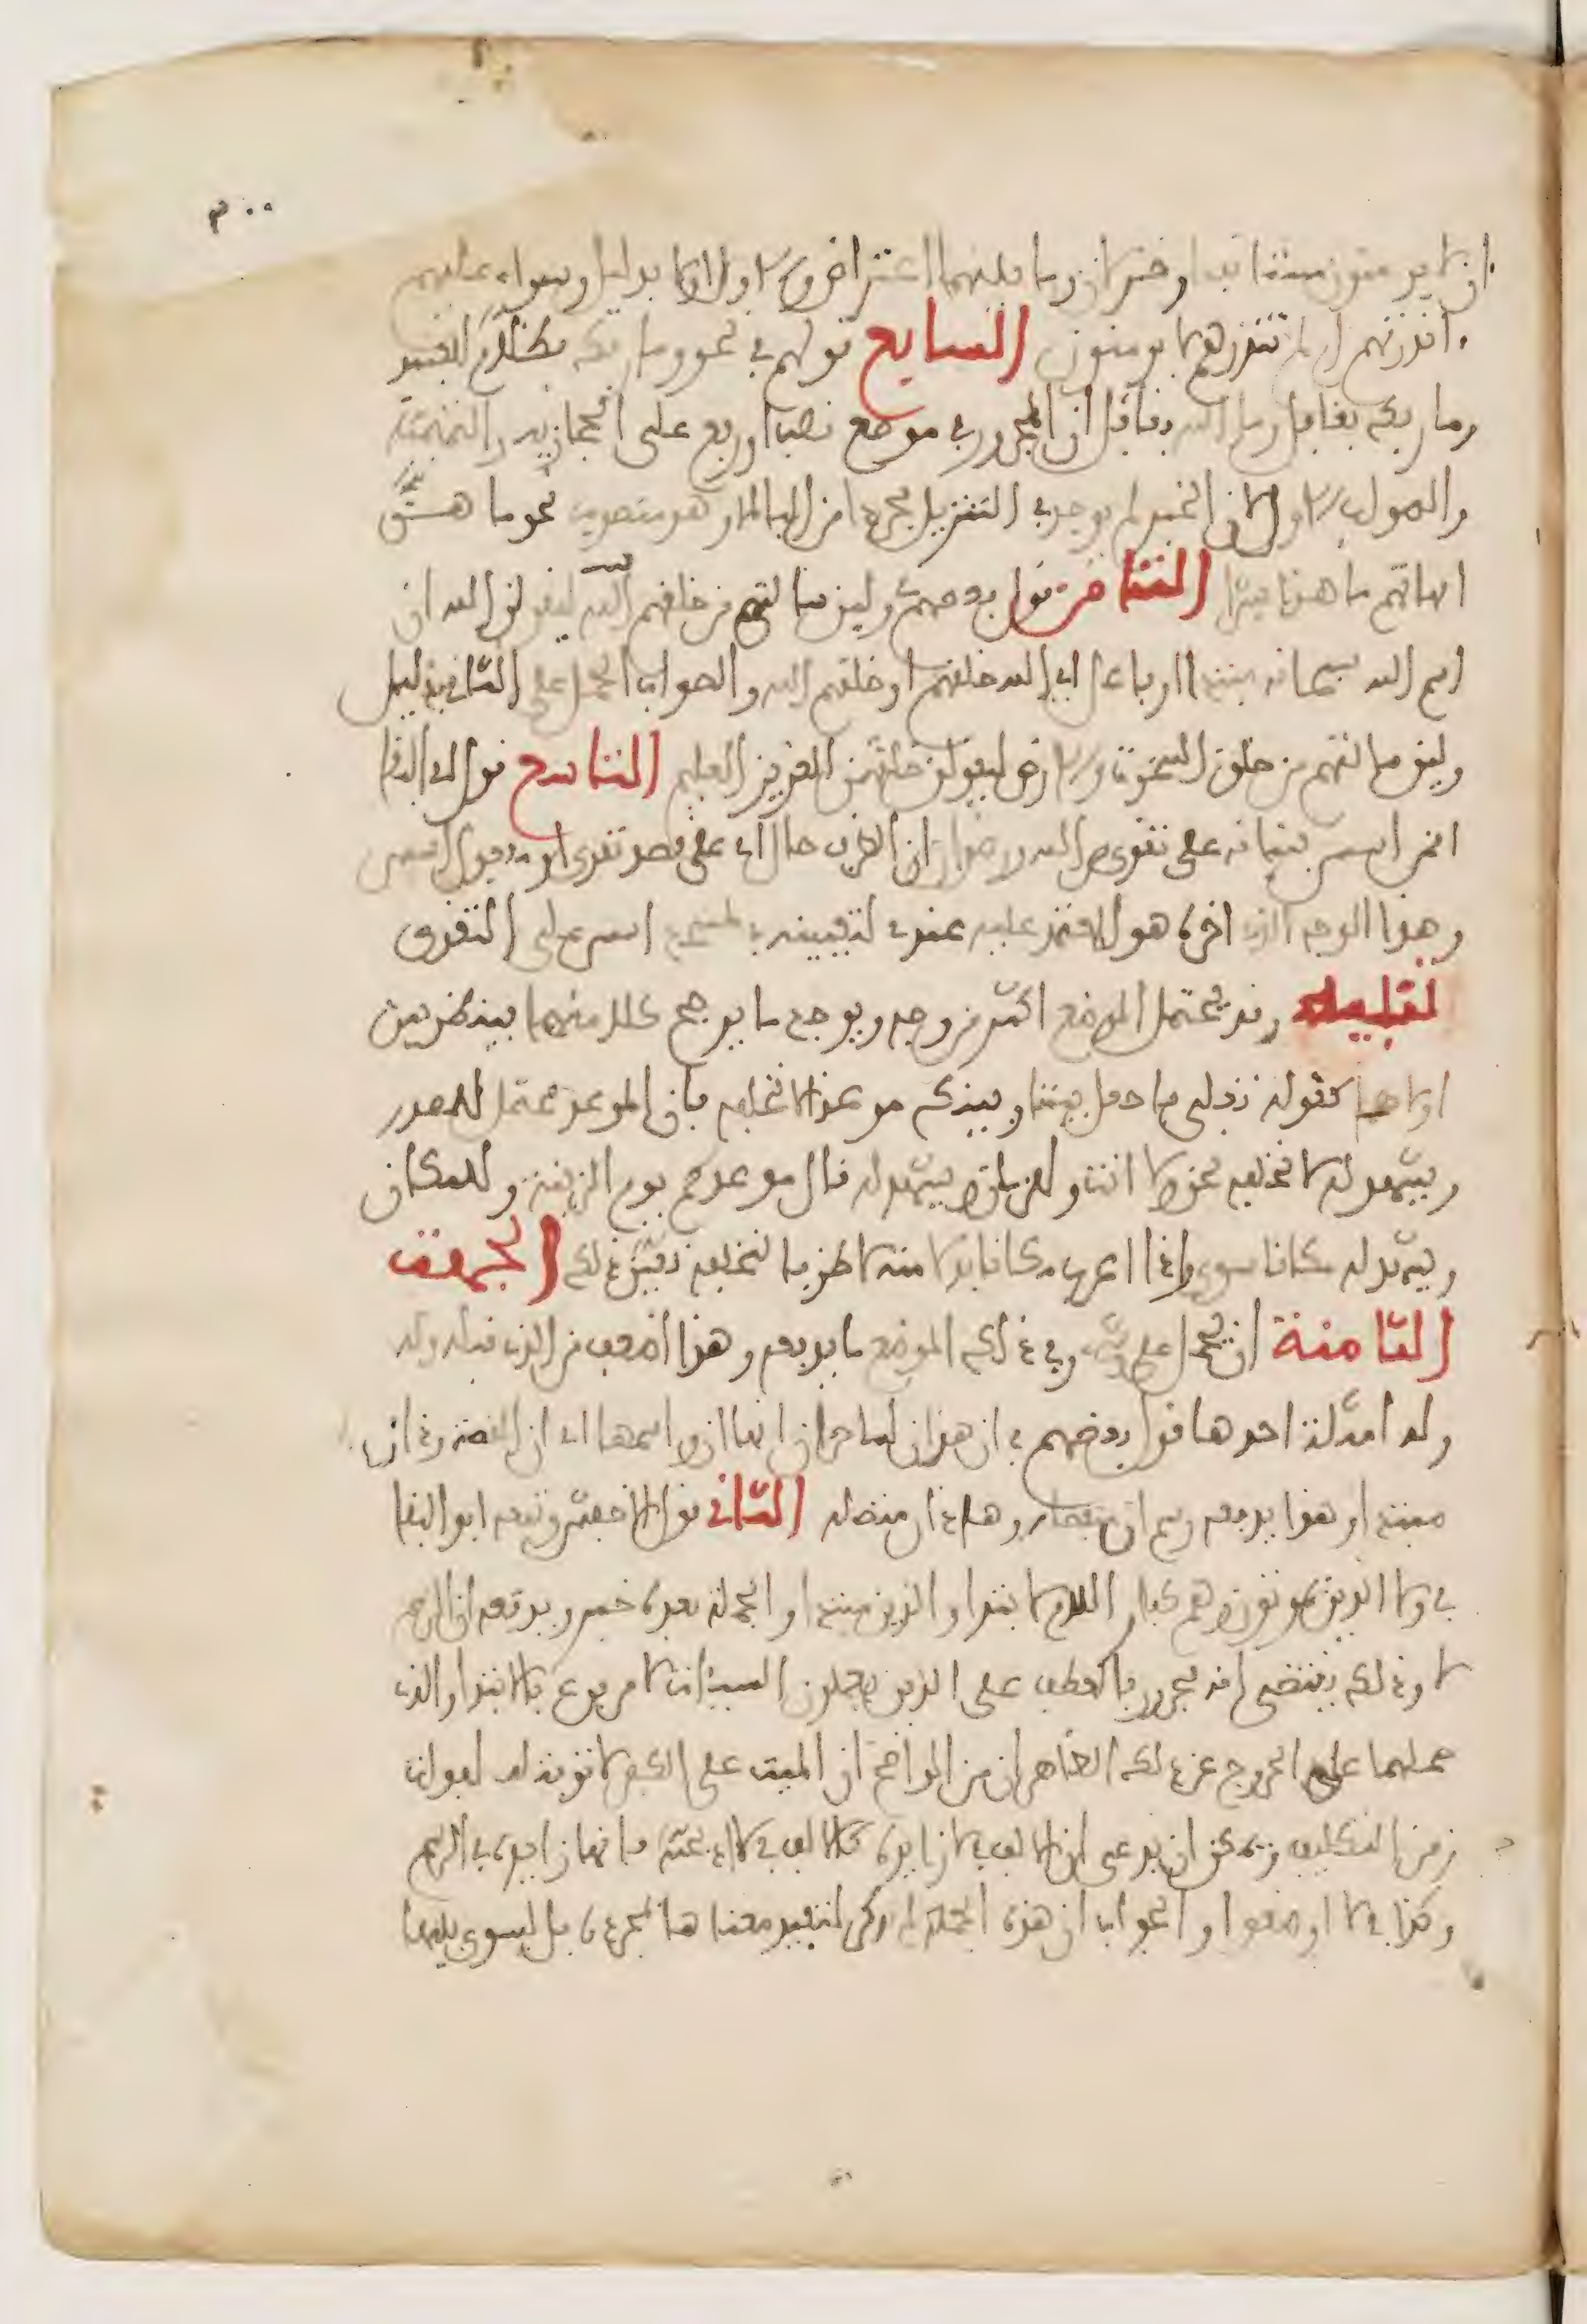 ان لا يومنون مستانف او خبر لان وما بينهما اعتراض والاولى الاول بدليل وسواء عليهم
ءانذرتهم ام لم تنذرهم لا يومنون السابع قولهم في نحو وما ربك بظلام للعبيد
وما ربك بغافل وما الله بغافل ان المجرور في موضع نصب او رفع على الحجازية والتميمية
والصواب الاول لان الخبر لم يوجد في التنزيل مجردا من الباء الا وهو منصوب نحو ما هن
امهاتهم ما هذا بشرا الثامن قول بعضهم في ولين سالتهم من خلقهم ليقولن الله ان
اسم الله سبحانه مبتدا او فاعل اي الله خلقهم او خلقهم الله والصواب الحمل على الثاني بدليل
ولين سالتهم من خلق السموات والارض ليقولن خلقهن العزيز العليم التاسع قول ابي البقا
افمن اسس بنيانه على تقوى من الله ورضوان ان الظرف حال اي على قصد تقوى او مفعول اسس
وهذا الوجه الذي اخره هو المعتمد عليه عندي لتعيينه في لمسجد اسس على التقوى
تنبيه وقد يحتمل الموضع اكثر من وجه ويوجد ما يرجح كلا منهما فينظر بين
اولاها كقوله تعالى فاجعل بيننا وبينك موعدا لا نخلفه فان الموعد محتمل للمصدر
ويشهد له لا نخلفه نحن ولا انت وللزمان ويشهد له قال موعدكم يوم الزينة وللمكان
ويشهد له مكانا سوى واذا اعرب مكانا بدلا منه لا ظرفا لنخلفه تعين ذلك الجهة
الثامنة ان يحمل على شيء وفي ذلك الموضع ما يدفعه وهذا اصعب من الذي قبله وله
وله امثلة احدها قول بعضهم في ان هذان لساحران انها ان واسمها اي ان القصة وذان
مبتدا وهذا يدفعه رسم ان منفصلة وهذان متصلة الثاني قول الاخفش وتبعه ابو البقا
في ولا الذين يموتون وهم كفار ان اللام للابتدا والذين مبتدا والجملة بعده خبر ويدفعه ان الرسم
ولا وذلك يقتضي انه مجرور بالعطف على الذين يعملون السييات لا مرفوع بالابتدا والذي
حملهما على الخروج عن ذلك الظاهر ان من الواضح ان الميت على الكفر لا توبة له لفوات
زمن التكليف ويمكن ان يدعى ان الالف في لا زايدة كالالف في لا اذبحنه فانها زايدة في الرسم
وكذا في لا اوضعوا والجواب ان هذه الجملة لم تذكر لتفيد معناها بمجرده بل ليسوى بينها